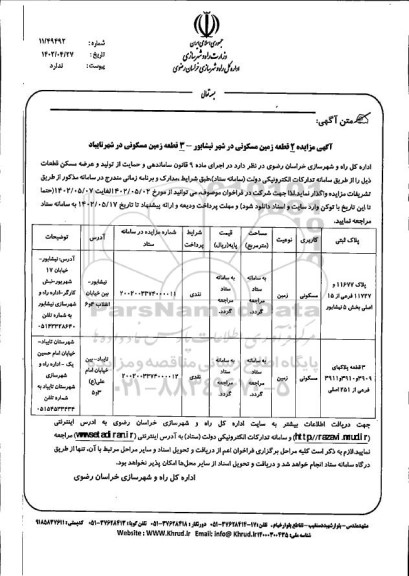 جمهوری اسلامی ایران
وزارت راه و شهرسازی
اداره کل راه و شهرسازی خراسان رضوی
شماره : ۱۱/۴۹۴۹۲
تاریخ : ۱۴۰۲/۰۴/۲۷
پیوست : ندارد
بسمه تعالی
متن آگهی:
آگهی مزایده ۲ قطعه زمین مسکونی در شهر نیشابور - ۳ قطعه زمین مسکونی در شهر تایباد
اداره کل راه و شهرسازی خراسان رضوی در نظر دارد در اجرای ماده ۹ قانون ساماندهی و حمایت از تولید و عرضه مسکن قطعات
ذیل را از طریق سامانه تدارکات الکترونیکی دولت (سامانه ستاد)طبق شرایط ،مدارک و برنامه زمانی مندرج در سامانه مذکور از طریق
تشریفات مزایده واگذار نماید.لذا جهت شرکت در فراخوان موصوف، می توانید از مورخ ۱۴۰۲/۰۵/۰۲لغایت ۱۴۰۲/۰۵/۰۷(حتما
تا این تاریخ با توکن وارد سایت و اسناد دانلود شود) و مهلت پرداخت ودیعه و ارائه پیشنهاد تا تاریخ ۱۴۰۲/۰۵/۱۷ به سامانه ستاد
مراجعه نمایید.
پلاک ثبتی کاربری نوعیت مساحت (مترمربع) قیمت پایه(ریال) شرایط پرداخت شماره مزایده در سامانه ستاد آدرس توضیحات
پلاک ۱۱۶۷۷ و ۱۱۷۲۷ فرعی از ۱۵ اصلی بخش ۵ نیشابور مسکونی زمین به سامانه ستاد مراجعه گردد. به سامانه ستاد مراجعه گردد. نقدی ۲۰۰۲۰۰۳۳۷۴۰۰۰۰۱۱ نیشابور- بین خیابان انقلاب ۴و۶ آدرس: نیشابور- خیابان ۱۷ شهریور-نبش کارگر-اداره راه و شهرسازی نیشابور به شماره تلفن
۳قطعه پلاکهای ۳۹۰۹و۳۹۱۰و۳۹۱۱ فرعی از ۲۵۱ اصلی مسکونی زمین به سامانه ستاد مراجعه گردد. به سامانه ستاد مراجعه گردد. نقدی ۲۰۰۲۰۰۳۳۷۴۰۰۰۰۱۲ تایباد- بین خیابان امام علی(ع) ۳و۵ شهرستان تایباد- خیابان امام خمینی یک - اداره راه و شهرسازی شهرستان تایباد به شماره تلفن ۰۵۱۵۴۵۳۳۴۳۴
ParsNamadData
پایگاه اطلاع رسانی مناقصه و مزایده
۰۲۱-۸۸۳۴۹۶۷۰-۵
جهت دریافت اطلاعات بیشتر به سایت اداره کل راه و شهرسازی خراسان رضوی به ادرس اینترنتی
(http://razavi.mrud.ir) و سامانه تدارکات الکترونیکی دولت (ستاد) به آدرس اینترنتی (www.setadiran.ir) مراجعه
نمایید.لازم به ذکر است کلیه مراحل برگزاری فراخوان اعم از دریافت و تحویل اسناد و سایر مراحل مرتبط با آن، تنها از طریق
درگاه سامانه ستاد انجام خواهد شد و دریافت و تحویل اسناد از سایر محل‌ها امکان پذیر نخواهد بود.
اداره کل راه و شهرسازی خراسان رضوی
Website : WWW.Khrud.Ir Email: info@ Khrud.Ir